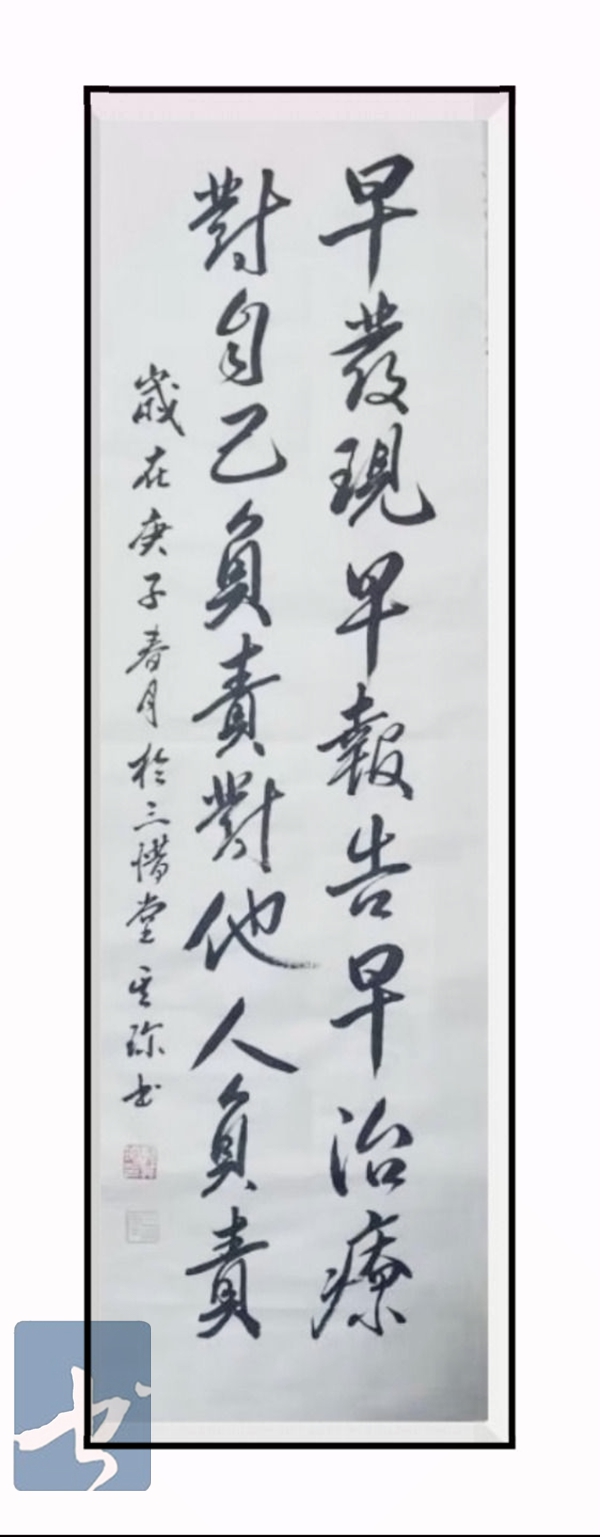 早發現早報告早治療
對自己負責對他人負責
歲在庚子春月於三惜堂雲珍書
书